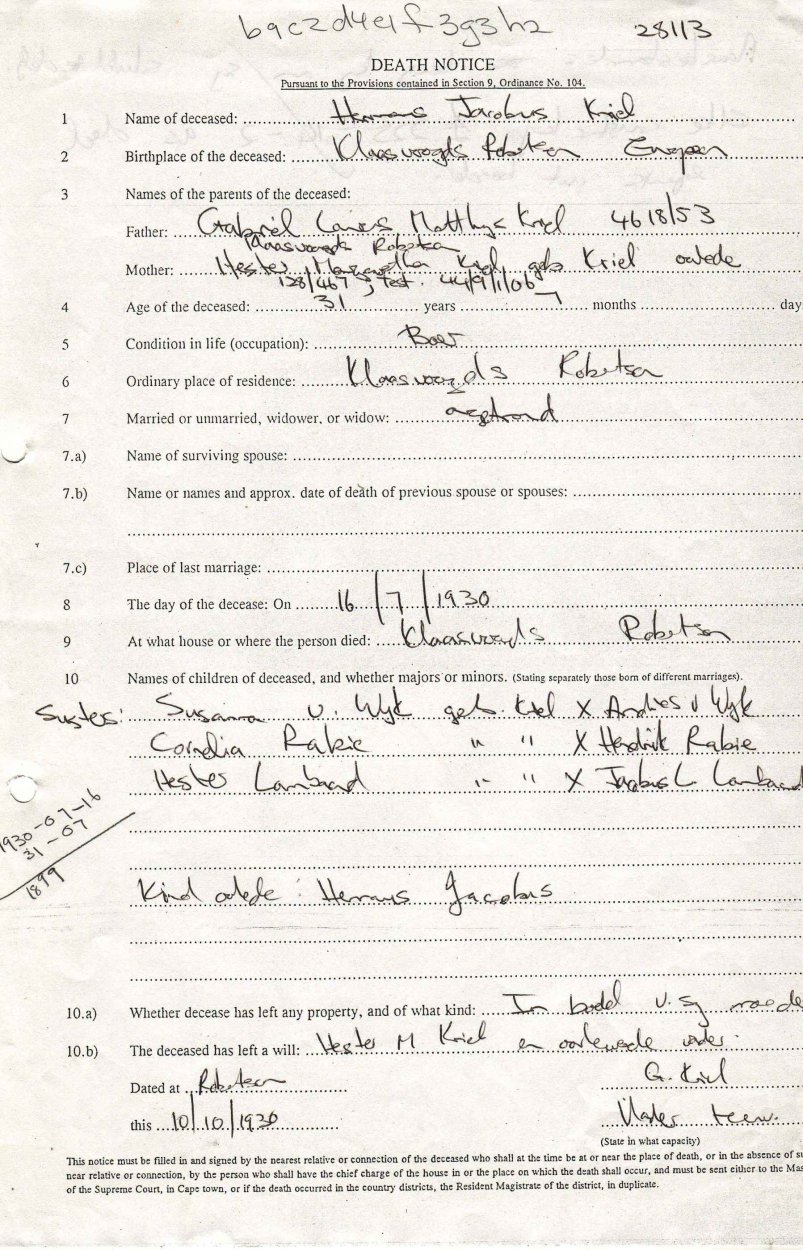 b9c2d4e1f3g3h2 28113
DEATH NOTICE
Pursuant to the Provisions contained in Section 9, Ordinance No. 104.
1 Name of deceased: Hermanus Jacobus Kriel
2 Birthplace of the deceased: Klaasvoogds Robertson European
3 Names of the parents of the deceased:
Father: Gabriël Matthys Kriel 4618/53
Klaasvoogds Robertson
Mother: Hester Kriel geb Kriel
128/467 ; Test. 44/9/1/06
4 Age of the deceased: 31 years 7 months days
5 Condition in life (occupation): Boer
6 Ordinary place of residence: Klaasvoogds Robertson
7 Married or unmarried, widower, or widow:
7.a) Name of surviving spouse:
7.b) Name or names and approx. date of death of previous spouse or spouses:
7.c) Place of last marriage:
8 The day of the decease: On 16/7/1930
9 At what house or where the person died: Klaasvoogds Robertson
10 Names of children of deceased, and whether majors or minors. (Stating separately those born of different marriages).
Susters: Susanna v. Wyk geb. Kriel X Andries v Wyk
Cornelia Rabie " " X Hendrik Rabie
Hester Lambaard " " X Jacobus L. Lambaard
1930-07-16
31-07
1899
Kind : Hermanus Jacobus
10.a) Whether decease has left any property, and of what kind: In boedel v. sy moeder
10.b) The deceased has left a will: Hester M Kriel en vader
Dated at Robertson G. Kriel
this 10/10/1930 Vader teenw.
(State in what capacity)
This notice must be filled in and signed by the nearest relative or connection of the deceased who shall at the time be at or near the place of death, or in the absence of
near relative or connection, by the person who shall have the chief charge of the house in or the place on which the death shall occur, and must be sent either to the
of the Supreme Court, in Cape town, or if the death occurred in the country districts, the Resident Magistrate of the district, in duplicate.